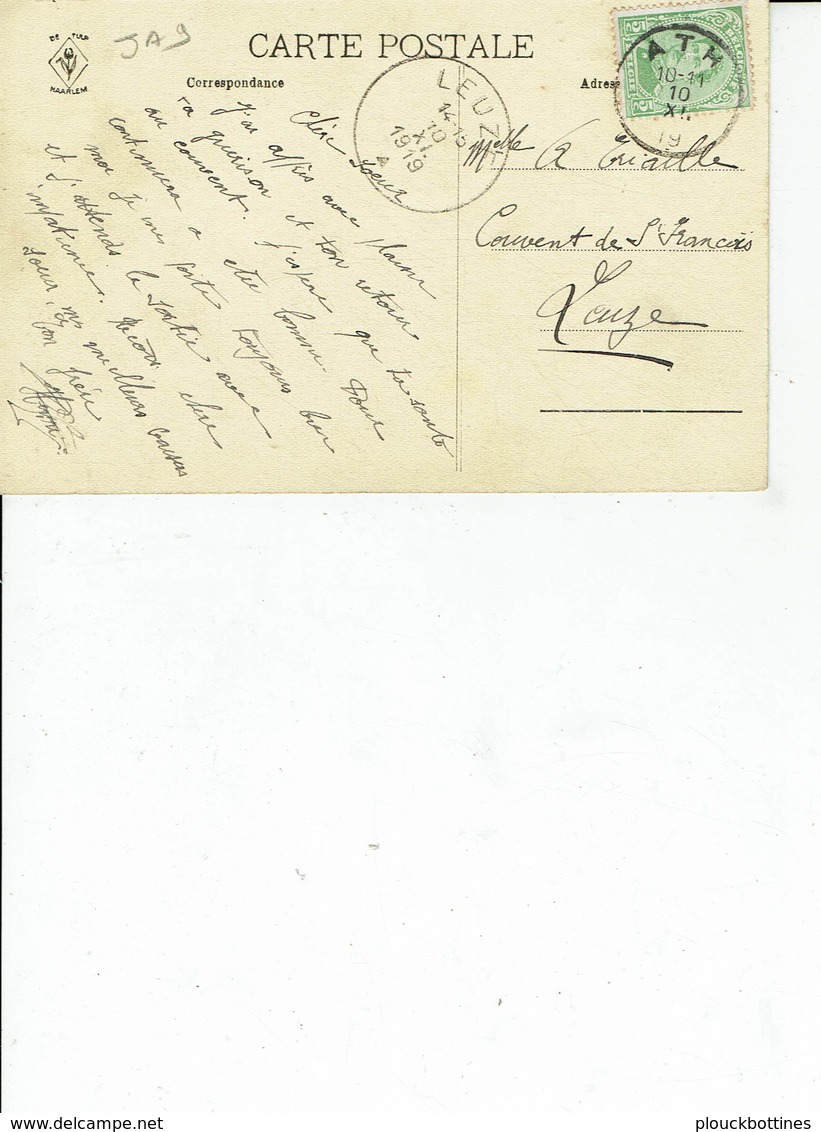 DE TULP
HAARLEM
JA9
CARTE POSTALE
Correspondance
Adres
LEUZE
14-15
10
XI
1919
ATH
10-11
10
XI
19
Chère soeur
J'ai appris avec plaisir
ta guérison et ton retour
au couvent. J'espère que ta santé
continuera a être bonne. Pour
moi je me porte toujours bien
et j'attends la sortie avec
impatience. Reçois chère
soeur, mes meilleurs baisers
Ton frère
Melle A Triaille
Couvent de St François
Leuze
delcampe.net
plouckbottines